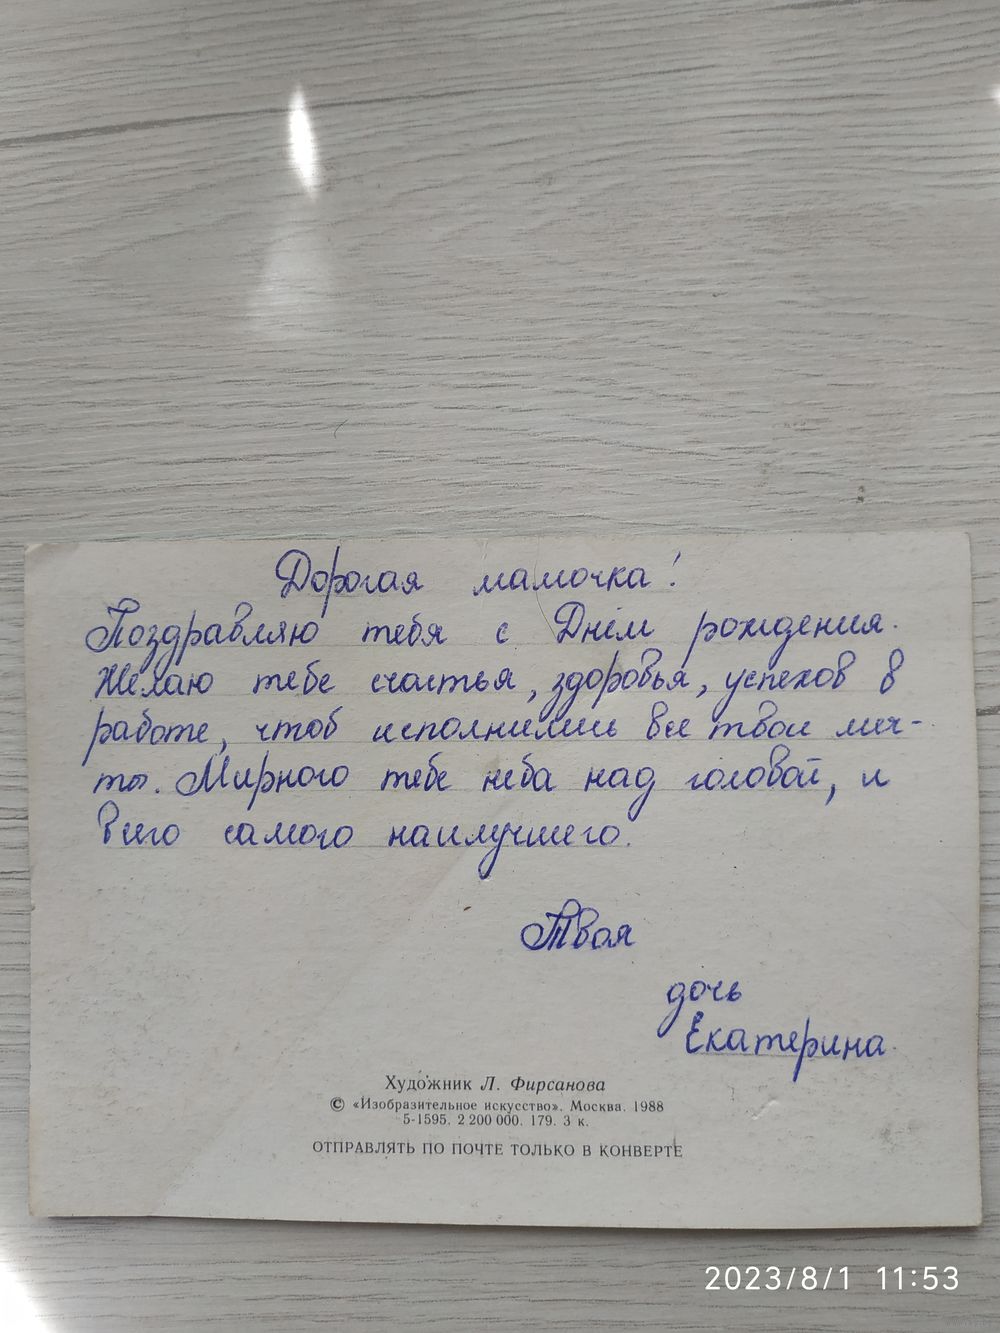 Дорогая мамочка!
Поздравляю тебя с Днём рождения.
Желаю тебе счастья, здоровья, успехов в
работе, чтоб исполнились все твои меч-
ты. Мирного тебе неба над головой, и
всего самого наилучшего.
Твоя
дочь
Екатерина
Художник Л. Фирсанова
© «Изобразительное искусство». Москва. 1988
5-1595. 2 200 000. 179. 3 к.
ОТПРАВЛЯТЬ ПО ПОЧТЕ ТОЛЬКО В КОНВЕРТЕ
2023/8/1 11:53